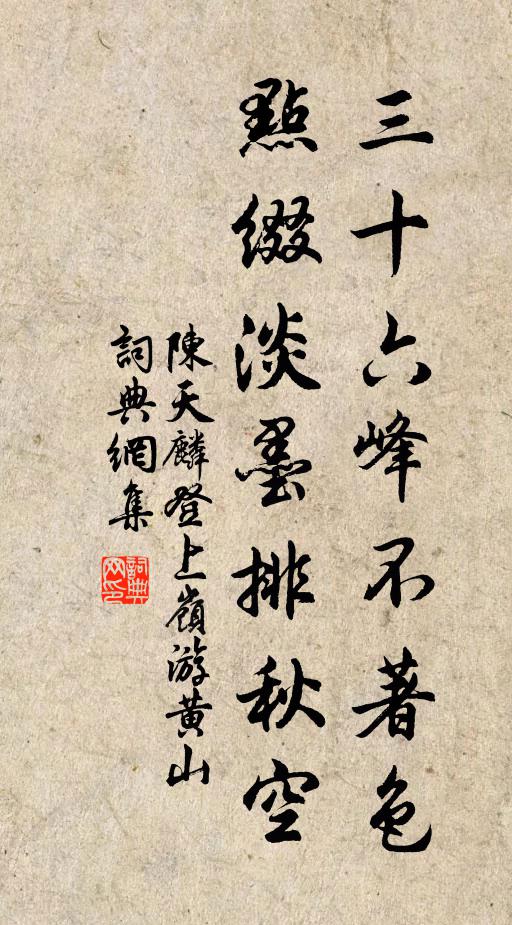 三十六峰不著色
點綴淡墨排秋空
陳天麟登上嶺游黄山
詞典網集
詞典网印